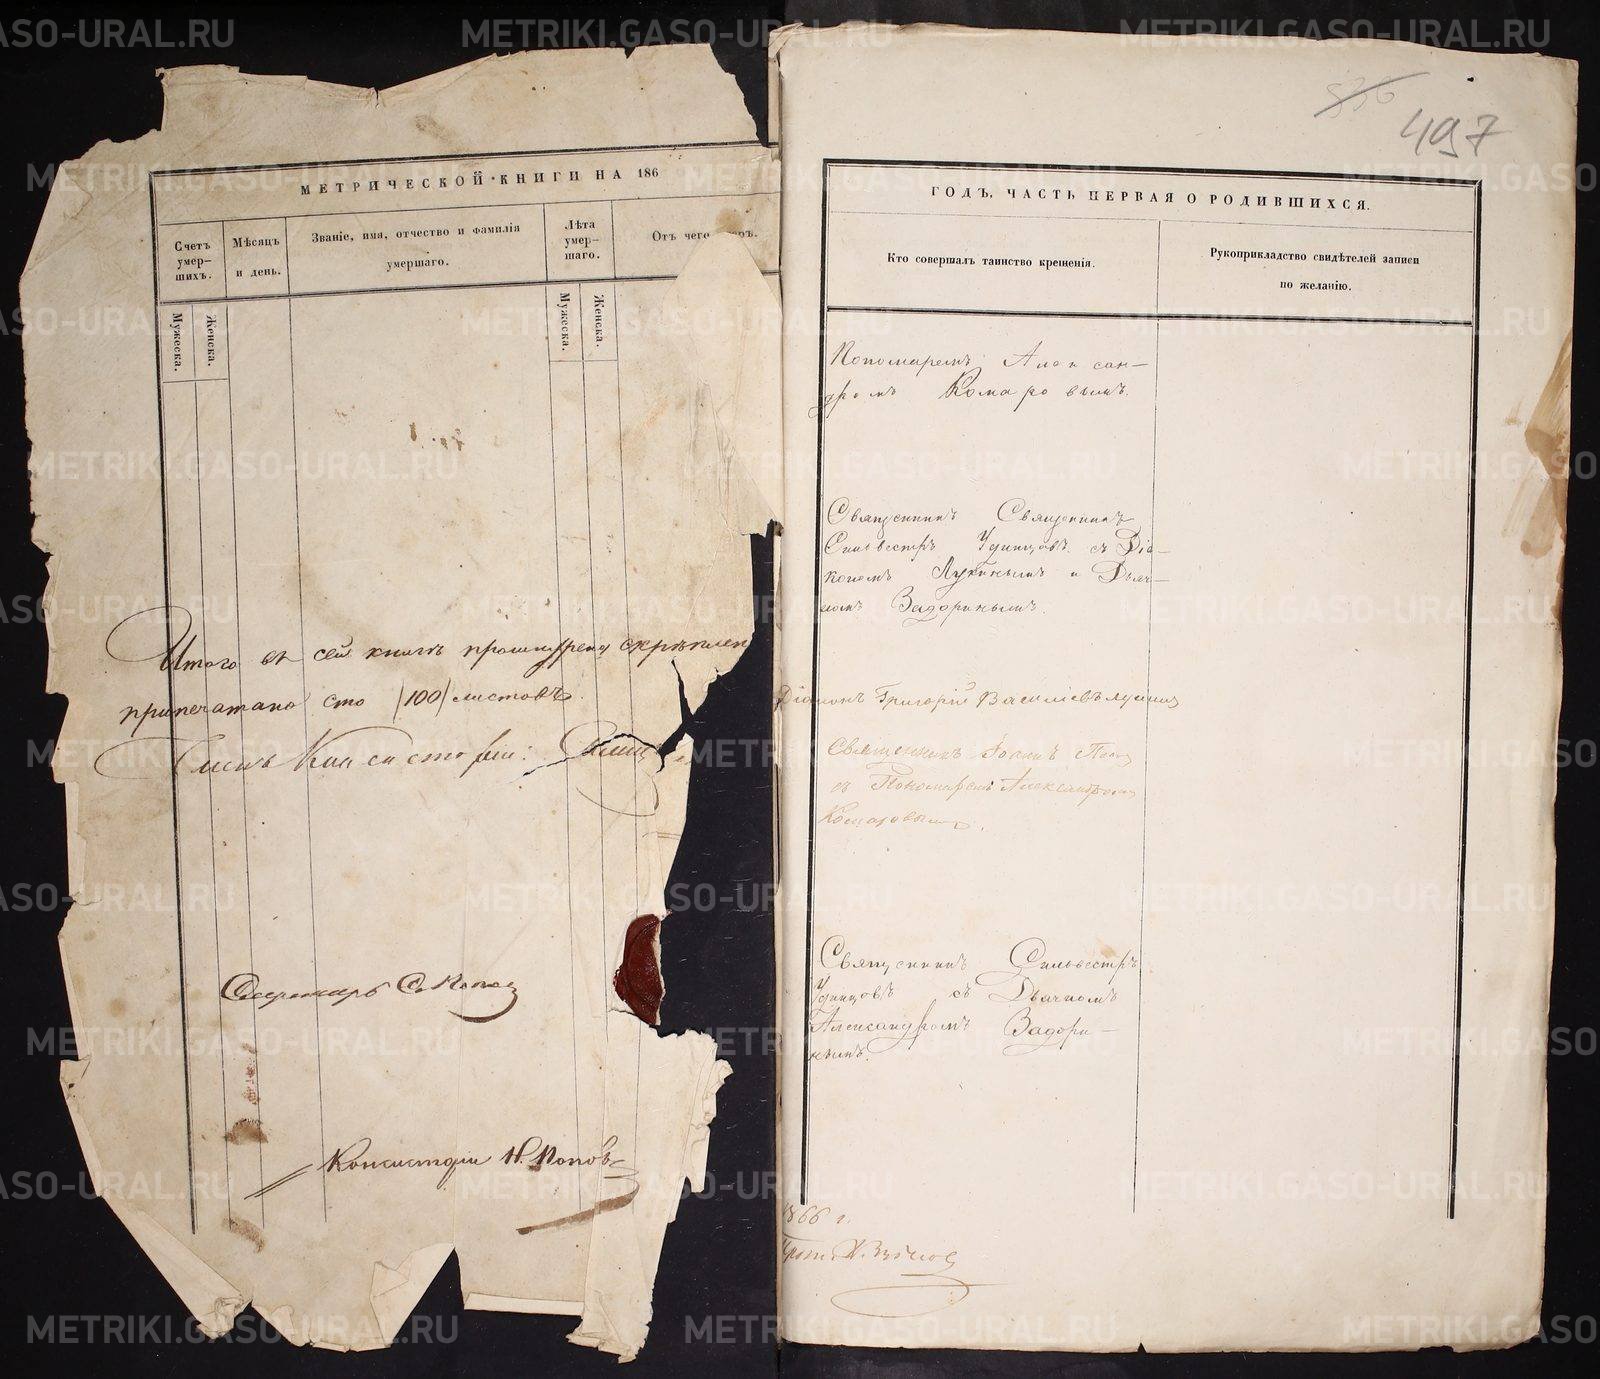 МЕТРИЧЕСКОЙ КНИГИ НА 186
Счетъ умер-
шихъ.
Мѣсяцъ
и день.
Званіе, имя, отчество и фамилія
умершаго.
Лѣта
умер-
шаго.
Отъ чего
Мужеска.
Женска.
Мужеска.
Женска.
Итого въ сей книгѣ
припечатано сто /100/ листовъ.
Членъ Консисторіи:
Секретарь С. Попов
Консисторіи Н. Поповъ
836
497
ГОДЪ, ЧАСТЬ ПЕРВАЯ О РОДИВШИХСЯ.
Кто совершалъ таинство крещенія.
Рукоприкладство свидѣтелей записи
по желанію.
Пономаремъ Алексан-
дромъ Комаровымъ.
Священникъ Священникъ
Сильвестръ Удинцовъ съ Діа-
кономъ Лукинымъ и Дьяч-
комъ Задоринымъ.
Діаконъ Григорій
Священникъ Іоаннъ Поп
съ Пономаремъ Александромъ
Комаровымъ.
Священникъ Сильвестръ
Удинцовъ съ Дьячкомъ
Александромъ Задори-
нымъ.
1866 г.
METRIKI.GASO-URAL.RU